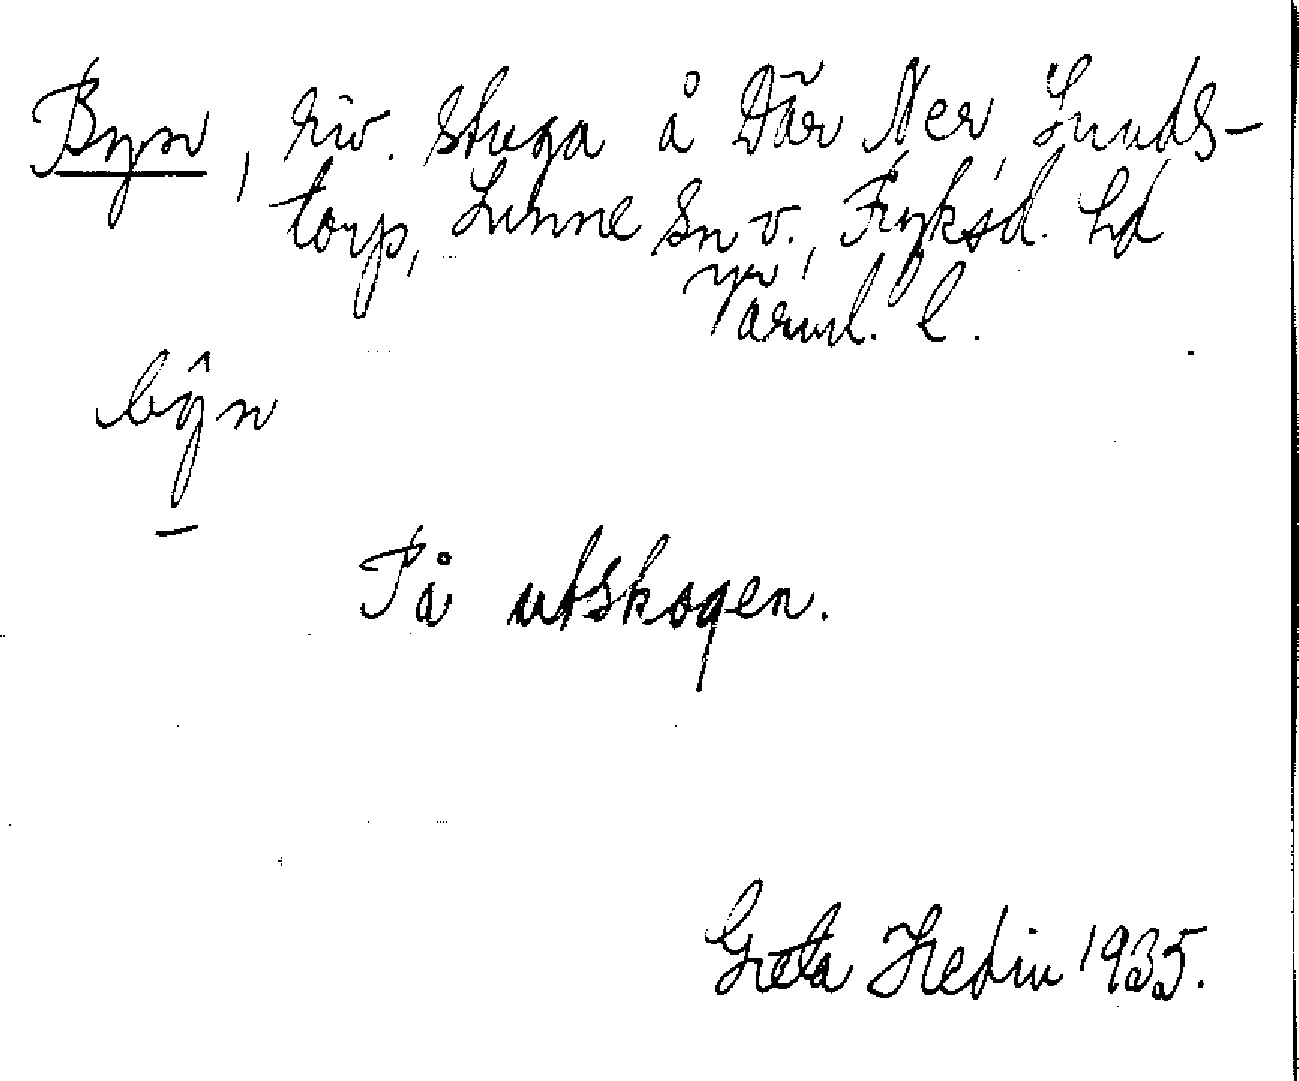 Byn, riv. stuga å Där Ner, Lunds-
torp, Sunne sn v., Fryksd. hd
Värml. l.
bŷn
På utskogen.
Greta Hedin 1935.